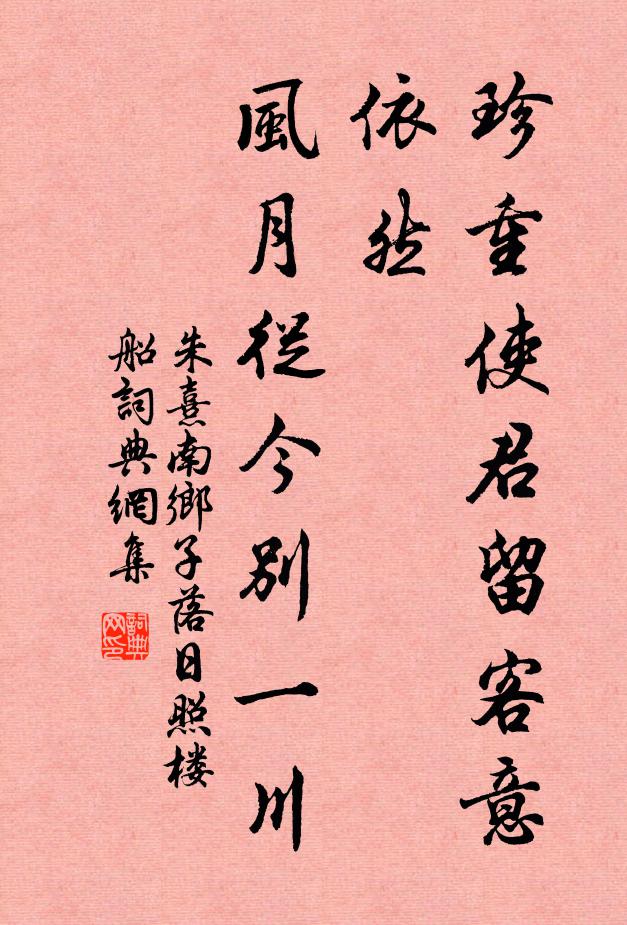 珍重使君留客意
依然
風月從今別一川
朱熹南鄉子落日照楼
船詞典網集
詞典
网印